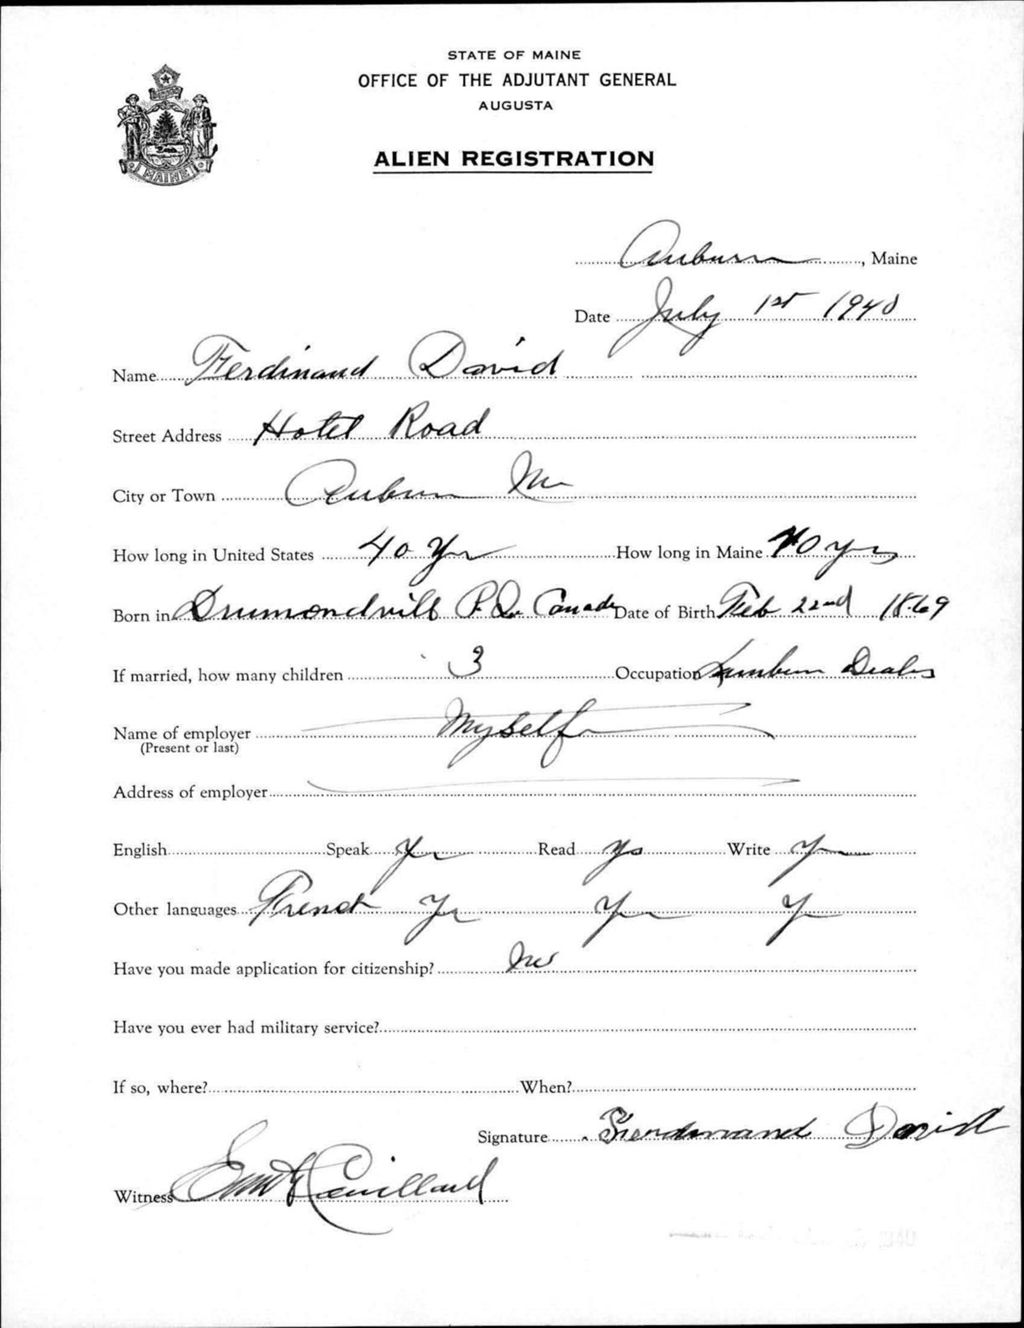 STATE OF MAINE
OFFICE OF THE ADJUTANT GENERAL
AUGUSTA
ALIEN REGISTRATION
MAINE
Auburn, Maine
Date July 1st 1940
Name Ferdinand David
Street Address Hotel Road
City or Town Auburn Me
How long in United States 40 Yr How long in Maine 40 yrs
Born in Drumondvill P.Q. Canada Date of Birth Feb 22nd 1869
If married, how many children 3 Occupation Lumber Dealer
Name of employer Myself
(Present or last)
Address of employer
English Speak Yes Read Yes Write Yes
Other languages French Yes Yes Yes
Have you made application for citizenship? No
Have you ever had military service?
If so, where? When?
Signature Ferdinand David
Witness